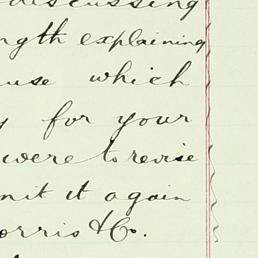 discussing
ngth explaining
use which
y for your
were to revise
mit it again
orris & Co.